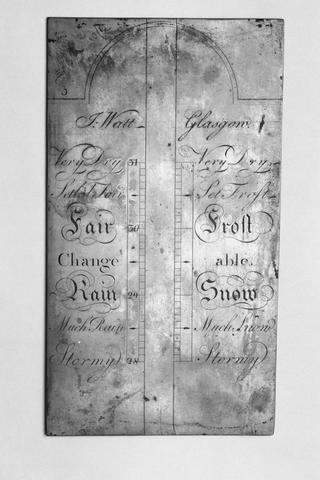 J. Watt Glasgow.
Very Dry 31 Very Dry
Settd. Fair Set Frost
Fair 30 Frost
Change able.
Rain 29 Snow
Much Rain Much Snow
Stormy 28 Stormy